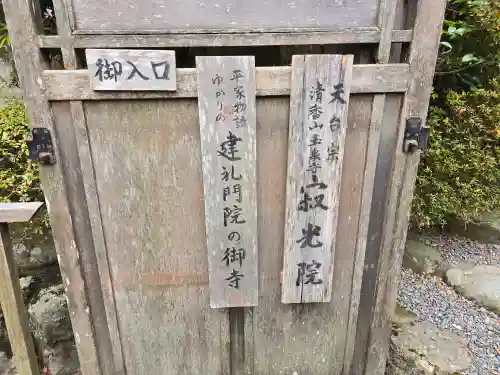 御入口
天台宗
清香山玉泉寺
寂光院
平家物語
ゆかりの
建礼門院の御寺